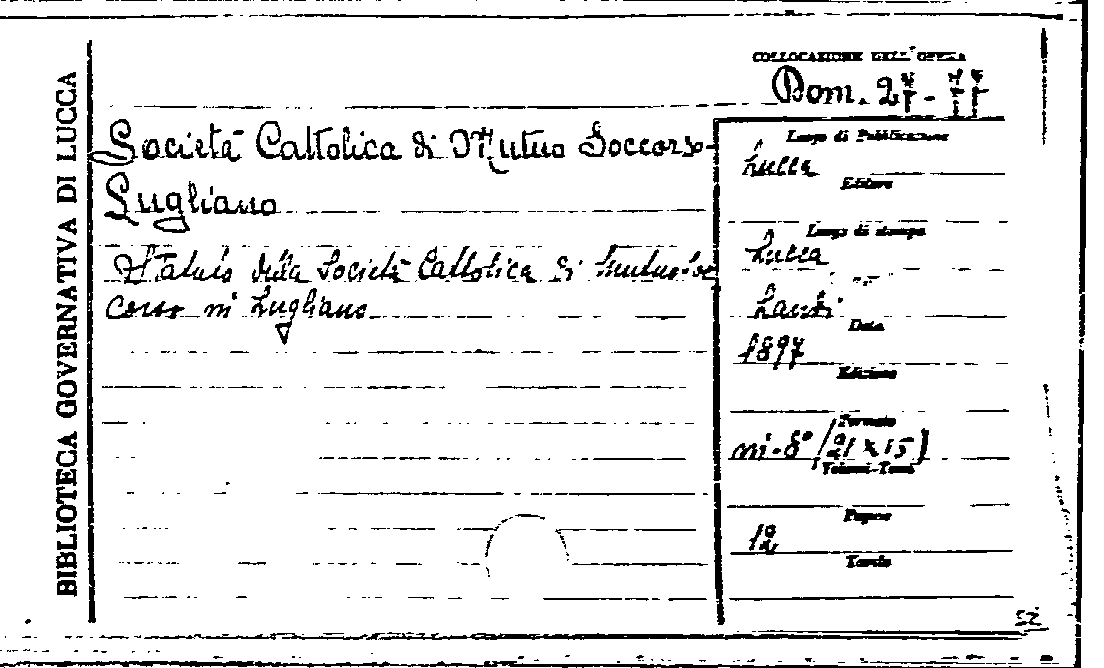 BIBLIOTECA GOVERNATIVA DI LUCCA
COLLOCAZIONE DELL'OPERA
Dom. 27-77
Società Cattolica di Mutuo Soccorso-
Lugliano
Statuto della Società Cattolica di Mutuo Soc
corso in Lugliano
Luogo di Pubblicazione
Lucca
Editore
Luogo di stampa
Lucca
Landi
Data
1897
Edizione
Formato
in-8° (21x15)
Volumi-Tomi
Pagine
12
Tavole